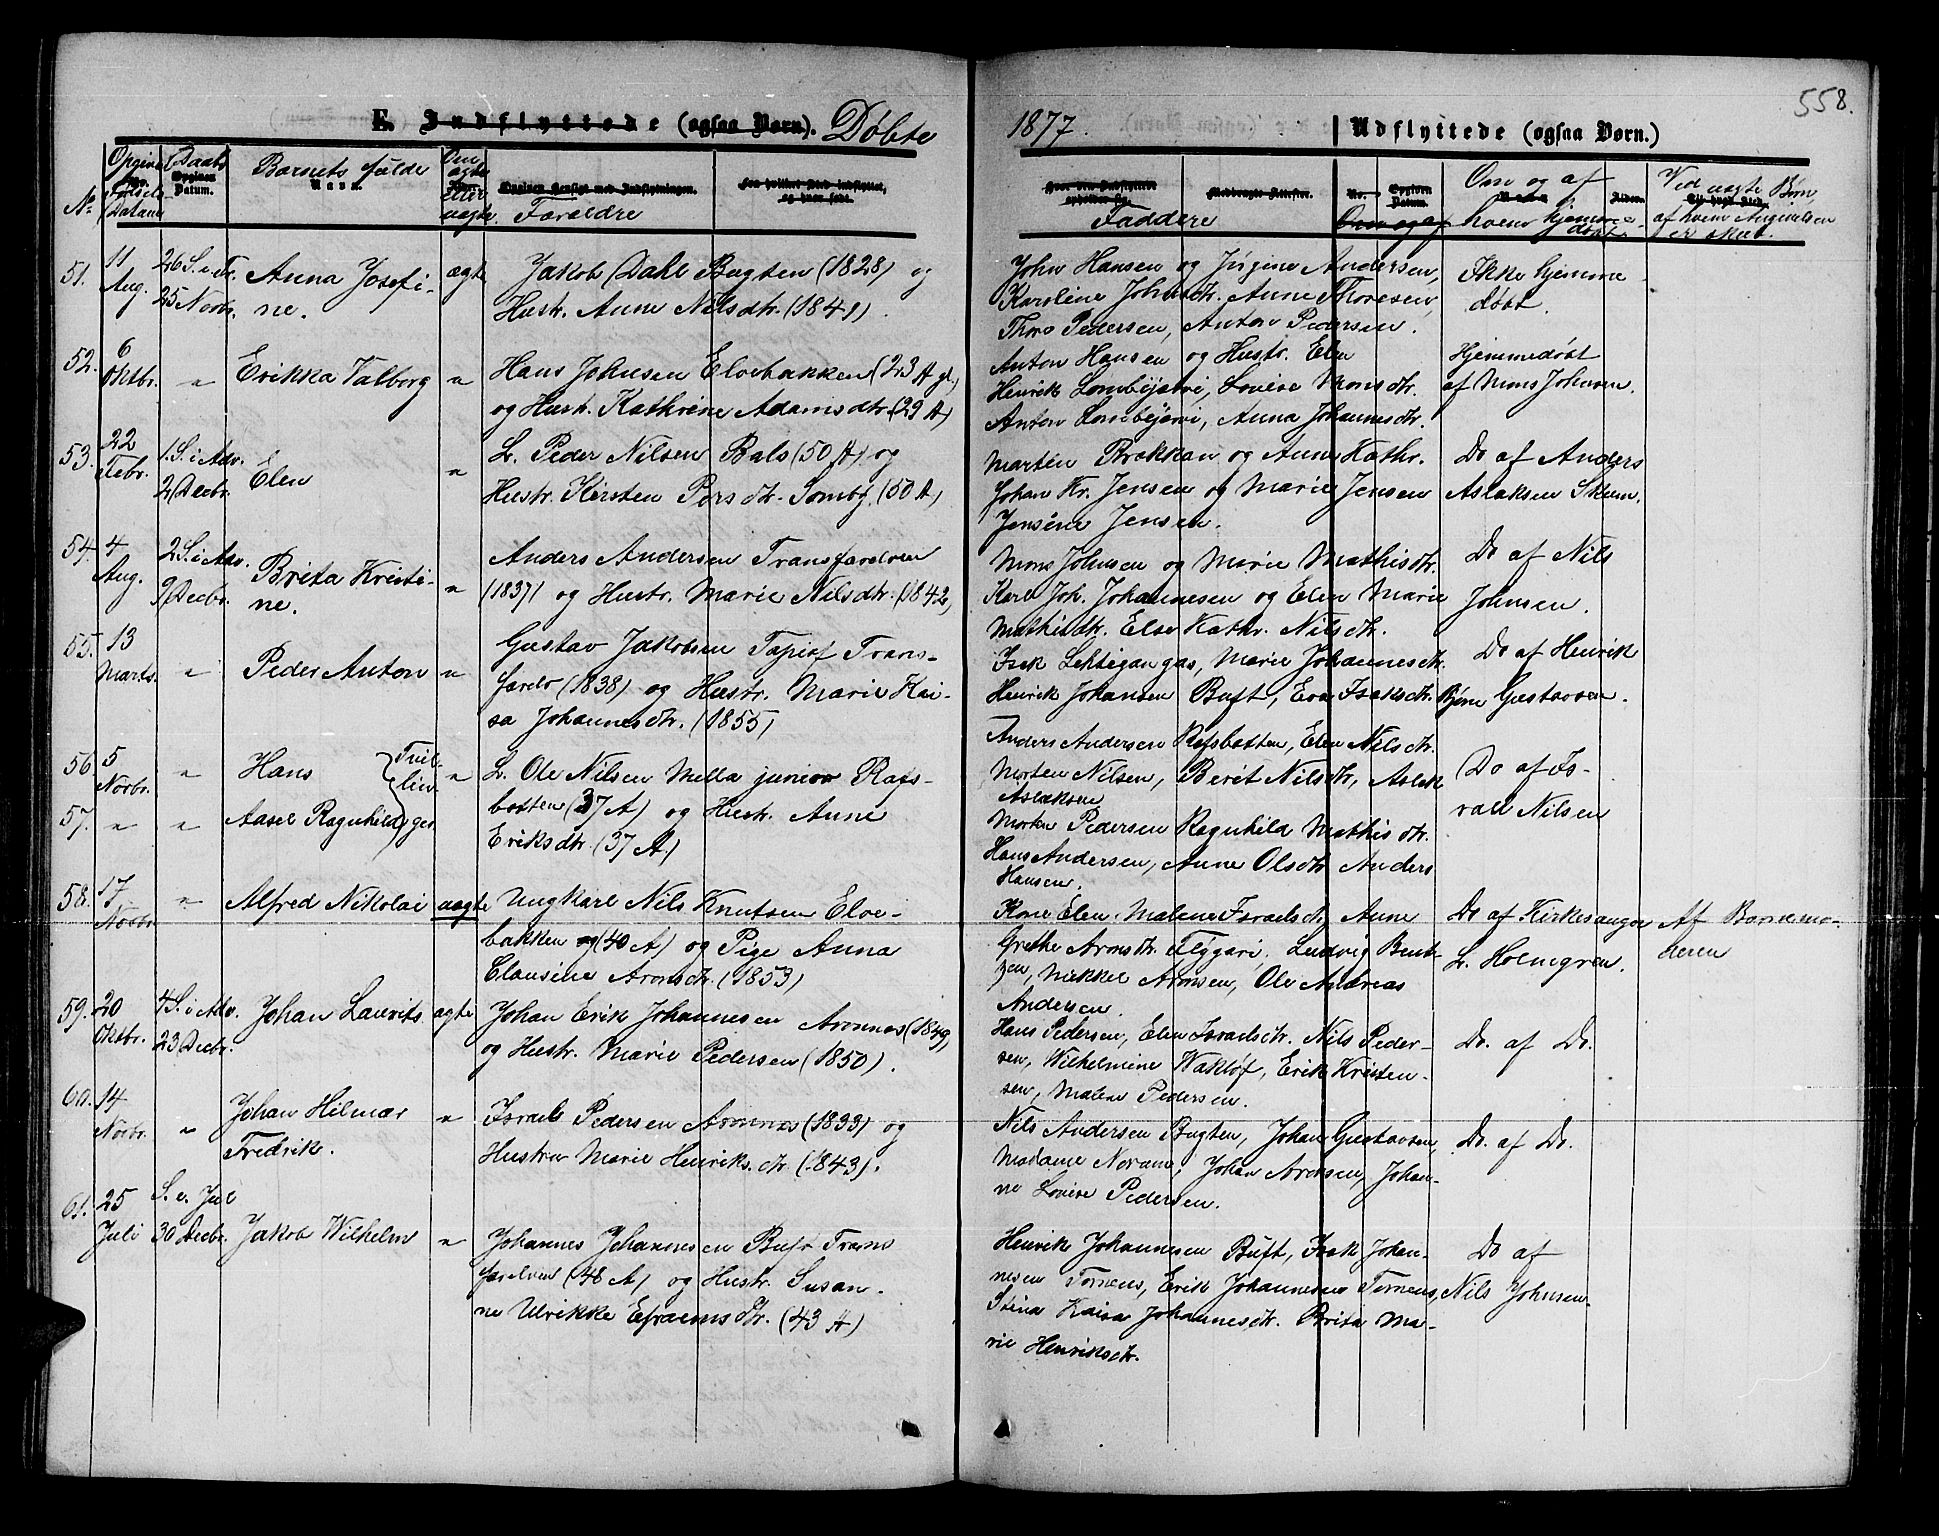 558.
E. Indflyttede (ogsaa Børn). Døbte
1877.
Udflyttede (ogsaa Børn.)
No
Opgiven Fødsels Datum
Daabs Datum.
Barnets fulde Navn.
Om ægte eller uægte.
Forældre
Faddere
Om og af hvem hjemmedøbt
Ved uægte Børn, af hvem Angivelsen er skeet.
51. 11 Aug. 26 S. e. Tr. 25 Novbr. Anna Josefi-
ne. ægte Jakob (Dahl Bugten (1828) og
Hustr. Anne Nilsdtr. (1841).
John Hansen og Jørgine Andersen,
Karoline Johnsdtr. Anne Thoresen,
Thore Pedersen, Anton Pedersen.
Ikke hjemme
døbt.
52. 6 Oktbr. " Erikka Valborg "
Hans Johnsen Elvebakken (23 A gl.)
og Hustr. Kathrine Adamsdtr. (29 A)
Anton Hansen og Hustr. Elen
Henrik Lombijærvi, Lovise Monsdtr.
Anton Lombijærvi, Anna Johannesdtr.
Hjemmedøbt
af Mons Johnsen.
53. 22 Febr. 1. S. i Adv. 2 Decbr. Elen "
L. Peder Nilsen Bals (50 A) og
Hustr. Kirsten Persdtr. Somby. (50 A)
Martin Brækkan og Anne Kathr.
Johan Kr. Jensen og Marie Jensen
Jensine Jensen.
Do af Anders
Aslaksen Skum.
54. 4 Aug. 2 S. i Adv. 9 Decbr. Brita Kristi-
ne. "
Anders Andersen Transfarelven
(1837) og Hustr. Marie Nilsdtr. (1842)
Mons Johnsen og Marie Mathisdtr.
Karl Joh. Johannesen og Elen Marie
Mathisdtr. Else Kathr. Nilsdtr.
Do af Nils
Johnsen.
55. 13 Marts. " Peder Anton "
Gustav Jakobsen Tapiof Trans-
farelv (1838) og Hustr. Marie Kai-
sa Johannesdtr. (1855)
Isak Lehtigangas, Marie Johannesdtr.
Henrik Johansen Buft, Eva Isaksdtr. Bjørn
Do af Henrik
Gustavsen.
56. 5 Novbr. " Hans "
57. " " Aasel Ragnhild
Tvil-
lin-
ger
L. Ole Nilsen Mella junior Rafs-
botten (37 A) og Hustr. Anne
Eriksdtr. (37 A.)
Anders Andersen Rafsbotten, Elen Nilsdtr.
Morten Nilsen, Berit Nilsdtr, Aslak
Aslaksen
Morten Pedersen Ragnhild Mathisdtr.
Hans Andersen, Anne Olsdtr Anders
Hansen.
Do af Is-
rael Nilsen
58. 17 Novbr. " Alfred Nikolai uægte
Ungkarl Nils Knutsen Elve-
bakken (40 A) og Pige Anna
Clausine Aronsdtr. (1853)
Kone Elen Malene Israelsdtr, Anne
Grethe Aronsdtr. Flyggari, Ludvig Bent-
zen, Mikkel Aronsen, Ole Andreas
Andersen.
Do af Kirkesanger
L. Holmgren.
Af Barnemo-
deren
59. 20 Oktbr. 4 S. i Adv. 23 Decbr. Johan Laurits ægte
Johan Erik Johannesen Aronnes (1849)
og Hustr. Marie Pedersen (1850).
Hans Pedersen, Elen Israelsdtr. Nils Peder-
sen, Wilhelmine Wakløf, Erik Kristen-
sen, Malene Pedersen.
Do. af Do.
60. 14 Novbr. " Johan Hilmar
Fredrik. "
Israel Pedersen Aronnes (1833) og
Hustru Marie Henriksdtr (1843).
Nils Andersen Bugten, Johan Gustavsen,
Madame Norum, Johan Aronsen, Johan-
ne Lovise Pedersen.
Do. af Do.
61. 25 Juli S. e. Jul 30 Decbr. Jakob Wilhelm "
Johannes Johannesen Buft Trans
farelven (48 A) og Hustr. Susan-
ne Ulrikke Efraemsdtr. (43 A)
Henrik Johannesen Buft, Isak Johan-
nesen Tornens, Erik Johannesen Tornens,
Stina Kaisa Johannesdtr. Brita Ma-
rie Henriksdtr.
Do af
Nils Johnsen.